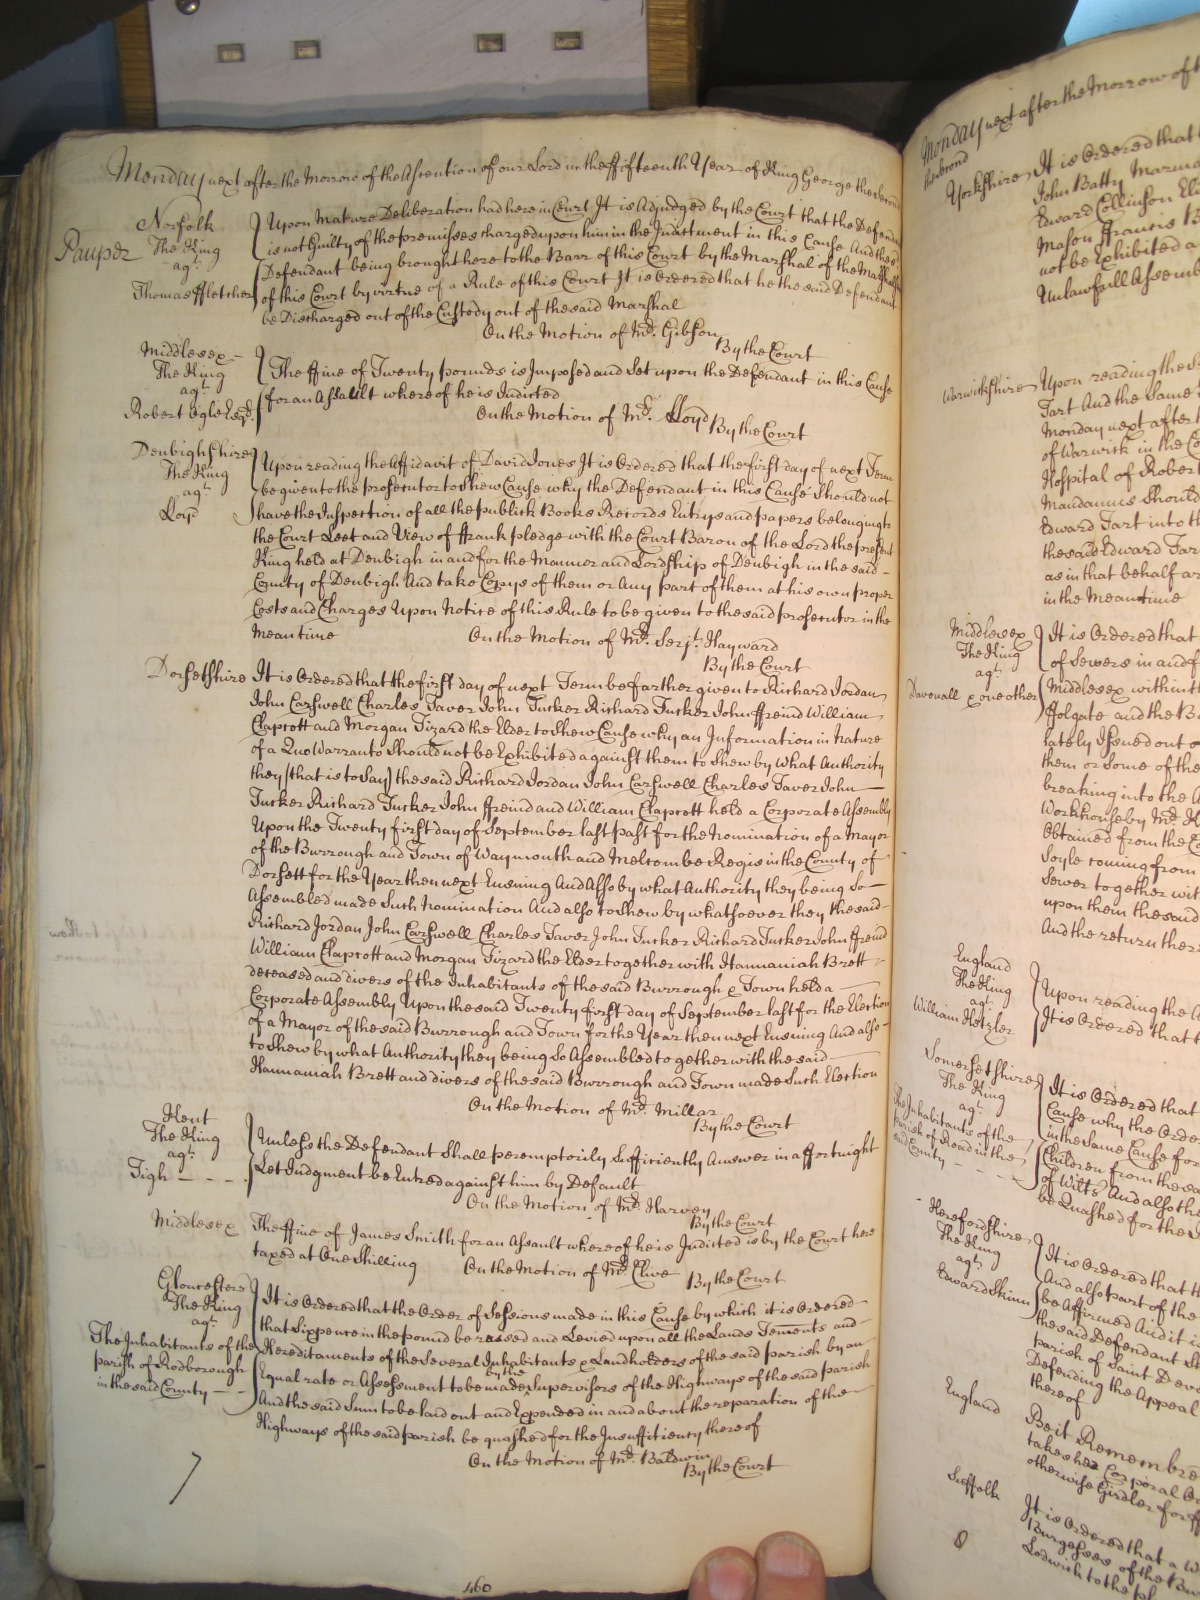 Monday next after the Morrow of the Ascention of our Lord in the ffifteenth Year of King George the Second
Pauper
Norfolk
The King
agt.
Thomas ffletcher
Upon Mature Deliberation had here in Court It is Adjudged by the Court that the Defendant
is not Guilty of the premisses charged upon him in the Indictment in this Cause And the
Defendant being brought here to the Barr of this Court by the Marshal of the Marshalsea
of this Court by virtue of a Rule of this Court It is Ordered that he the said Defendant
be Discharged out of the Custody out of the said Marshal
On the Motion of Mr. Gibson
By the Court
Middlesex
The King
agt.
Robert Ogle Esqr.
The ffine of Twenty pounds is Imposed and Set upon the Defendant in this Cause
for an Assault whereof he is Indicted
On the Motion of Mr. Lloyd
By the Court
Denbighshire
The King
agt.
Loyd
Upon reading the Affidavit of David Jones It is Ordered that the first day of next Term
be given to the prosecutor to Shew Cause why the Defendant in this Cause Should not
have the Inspection of all the publick Books Records Entrys and papers belonging to
the Court Leet and View of ffrank pledge with the Court Baron of the Lord the present
King held at Denbigh in and for the Mannor and Lordship of Denbigh in the said
County of Denbigh And take Copys of them or Any part of them at his own proper
Costs and Charges Upon Notice of this Rule to be given to the said prosecutor in the
Meantime
On the Motion of Mr. Serjt. Hayward
By the Court
Dorsetshire
It is Ordered that the first day of next Term be farther given to Richard Jordan
John Carswell Charles Taver John Tucker Richard Tucker John ffreind William
Claprott and Morgan Tizard the Elder to Shew Cause why an Information in Nature
of a Quo Warranto Should not be Exhibited against them to Shew by what Authority
they (that is to Say) the said Richard Jordan John Carswell Charles Taver John
Tucker Richard Tucker John ffreind and William Claprott held a Corporate Assembly
Upon the Twenty first day of September last past for the Nomination of a Mayor
of the Burrough and Town of Waymouth and Melcombe Regis in the County of
Dorsett for the Year then next Ensuing And Also by what Authority they being So
Assembled made Such Nomination And also to Shew by whatsoever they the said
Richard Jordan John Carswell Charles Taver John Tucker Richard Tucker John ffreind
William Claprott and Morgan Tizard the Elder together with Hannaniah Brett
deceased and divers of the Inhabitants of the said Burrough & Town held a
Corporate Assembly Upon the said Twenty first day of September last for the Election
of a Mayor of the said Burrough and Town for the Year then next Ensuing And also
to Shew by what Authority they being So Assembled together with the said
Hannaniah Brett and divers of the said Burrough and Town made Such Election
On the Motion of Mr. Millar
By the Court
Kent
The King
agt.
Tigh
Unless the Defendant Shall peremptorily Sufficiently Answer in a ffortnight
Let Judgment be Entred against him by Default
On the Motion of Mr. Harvey
By the Court
Middlesex
The ffine of James Smith for an Assault whereof he is Indicted is by the Court here
taxed at One Shilling
On the Motion of Mr. Clive
By the Court
Gloucesters
The King
agt.
The Inhabitants of the
parish of Rodborough
in the said County
It is Ordered that the Order of Sessions made in this Cause by which it is Ordered
that Sixpence in the pound be raised and Levied upon all the Lands Tements and
Hereditaments of the Several Inhabitants & Landholders of the said parish by an
Equal rate or Assessment to be made by the Supervisors of the Highways of the said parish
And the said Sum to be laid out and Expended in and about the reparation of the
Highways of the said parish be quashed for the Insufficiency thereof
On the Motion of Mr. Baldwin
By the Court
460
Monday next after the Morrow of
the Second
Yorkshire
It is Ordered that
John Batty
Edward Collinson
Mason Francis
not be Exhibited a
Unlawfull Assemb
Warwickshire
Upon reading the
Tart And the Same
Monday next after
of Warwick in the
Hospital of Robert
Mandamus Should
Edward Tart into th
the said Edward Tar
as in that behalf ar
in the Meantime
Middlesex
The King
agt.
Davenall & one other
It is Ordered that
of Sewers in and f
Middlesex within t
ffolgate and the B
lately Issued out o
them or Some of the
breaking into the
Workhouse by Mr.
Obtained from the
Soyle coming from
Sewer together wit
upon them the said
And the return there
England
The King
agt.
William Hetzler
Upon reading the
It is Ordered that
Somersetshire
The King
agt.
The Inhabitants of the
parish of Road in the
said County
It is Ordered that
Cause why the Orde
in the Same Cause for
Children from the sa
of Wilts And also th
be Quashed for the
Herefordshire
The King
agt.
Edward Skinn
It is Ordered that
And also part of the
be Affirmed And it i
the said Defendant
parish of Saint
Defending the Appeal
thereof
England
Be it Remembre
takes her Corporal
otherwise Girdler for
Suffolk
It is Ordered that a W
Burgesses of the Bu
Lodwick to the
8